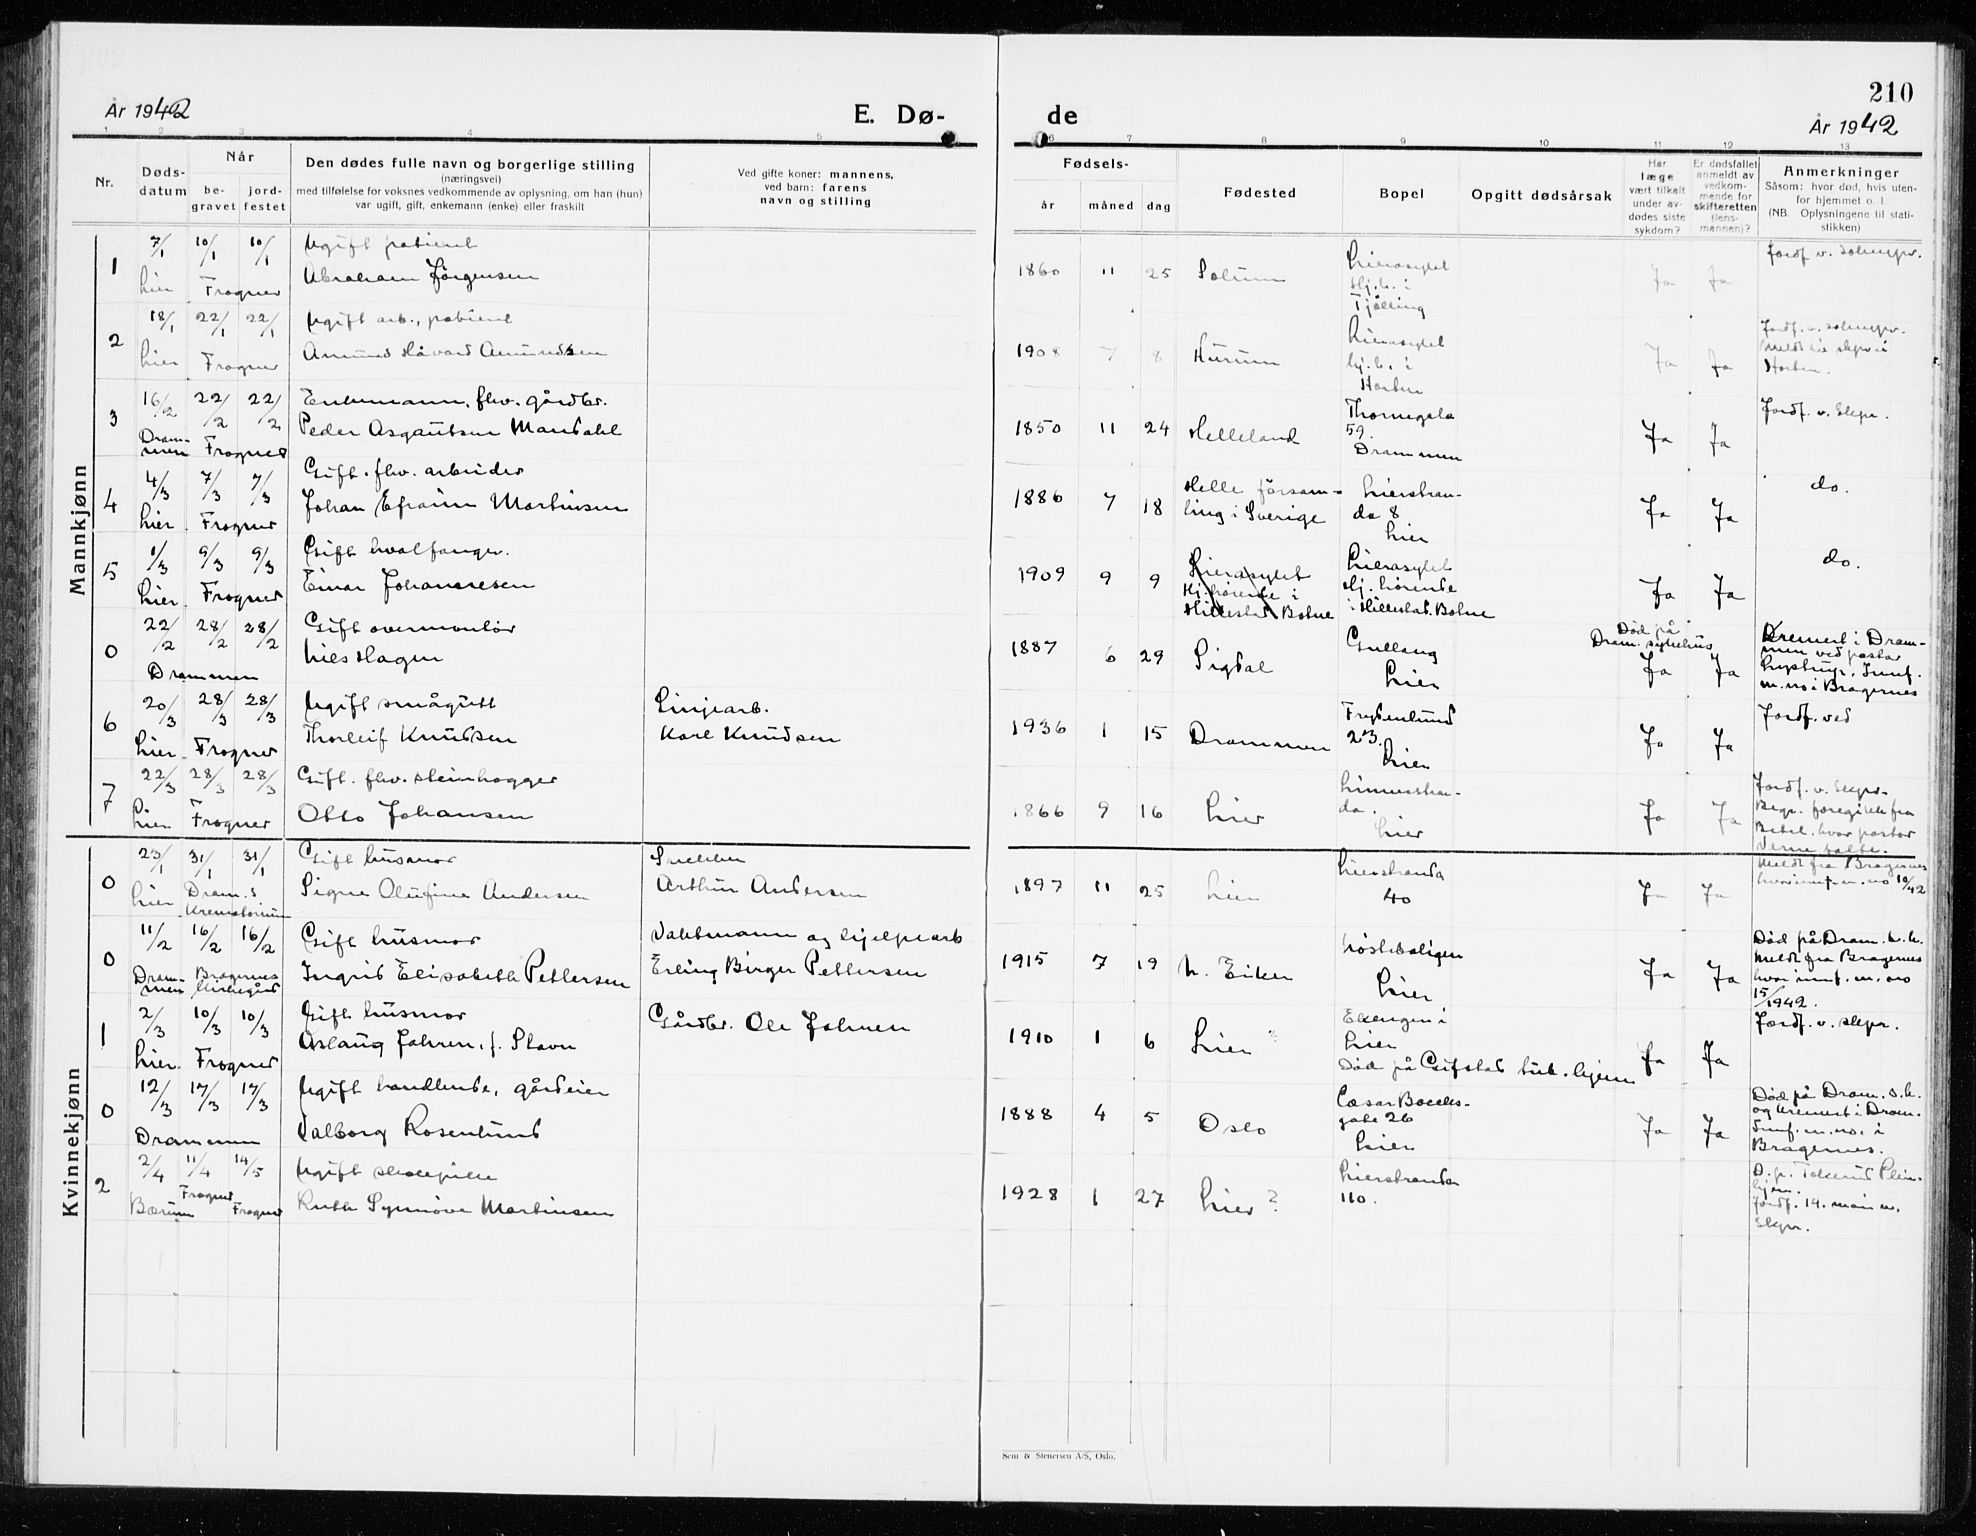 210
År 1942
E. Dø-
de
År 1942
1 2 3 4 5 6 7 8 9 10 11 12 13
Nr.
Døds-
datum
Når
be-
gravet
jord-
festet
Den dødes fulle navn og borgerlige stilling
(næringsvei)
med tilføielse for voksnes vedkommende av oplysning, om han (hun)
var ugift, gift, enkemann (enke) eller fraskilt
Ved gifte koner: mannens,
ved barn: farens
navn og stilling
Fødsels-
år
måned
dag
Fødested
Bopel
Opgitt dødsårsak
Har
læge
vært tilkalt
under av-
dødes siste
sykdom?
Er dødsfallet
anmeldt av
vedkom-
mende for
skifteretten
(lens-
mannen)?
Anmerkninger
Såsom: hvor død, hvis uten-
for hjemmet o. l.
(NB. Oplysningene til stati-
stikken)
Mannkjønn
1
7/1 10/1 10/1
Lier Frogner
Ugift patient
Abraham Jørgensen
1860 11 25
Solum
Lierasylet
Hj.h. i
Tjølling
Ja Ja
2
18/1 22/1 22/1
Lier Frogner
Ugift arb., patient
Amund Håvard Amundsen
1908 7 8
Hurum
Lierasylet
hj.h. i
Horten
Ja Ja
3
16/2 22/2 22/2
Dram-
men Frogner
Enkemann, fhv. gårdbr.
Peder Asgautsen Mandahl
1850 11 24
Helleland
Thornegata
59.
Drammen
Ja Ja
Jordf. v. Skpr.
4
4/3 7/3 7/3
Lier. Frogner
Gift. fhv. arbeider
Johan Efraim Martinsen
1886 7 18
Helle försam-
ling i Sverige
Lierstran-
da 8
Lier
Ja Ja
do.
5
1/3 9/3 9/3
Lier. Frogner
Gift hvalfanger.
Einar Johannesen
1909 9 9
Lierasylet
Hj. hørende i
Hillestad Botne
Lierasylet
Hj. hørende
i Hillestad. Botne
Ja Ja
do.
0
22/2 28/2 28/2
Drammen
Gift overmontør
Nils Hagen
1887 6 29
Sigdal
Gullaug
Lier
Død på
Dram. sykehus
Ja Ja
Kremert i Dram-
men ved pastor
Lystrup. Innf.
m. no i Bragernes
6
20/3 28/3 28/3
Lier Frogner
Ugift smågutt
Thorleif Knudsen
Linjearb.
Karl Knudsen
1936 1 15
Drammen
Frydenlund
23.
Lier
Ja Ja
Jordf. ved
7
22/3 28/3 28/3
Lier Frogner
Gift. fhv. steinhogger
Otto Johansen
1866 9 16
Lier
Linnesstran-
da.
Lier
Ja Ja
Jordf. v. Skpr.
Begr. foregikk fra
Betel. hvor pastor
Verne talte.
Kvinnekjønn
0
23/1 31/1 31/1
Lier Dram. s.
Krematorium
Gift husmor
Signe Olufine Andersen
Snekker
Arthur Andersen
1897 11 25
Lier
Lierstranda
40
Ja Ja
Meldt fra Bragernes
hvor innf. m. no 10/42
0
11/2 16/2 16/2
Dram-
men Bragernes
Kirkegård
Gift husmor
Ingrid Elisabeth Pettersen
Vaktmann og hjelpearb
Erling Birger Pettersen
1915 7 19
N. Eiker
Lier
Ja Ja
Meldt fra Bragernes
hvor innf. m. no
15/1942.
1
2/3 10/3 10/3
Lier. Frogner
Gift husmor
Aslaug Jahren, f. Stavn
Gårdbr. Ole Jahren
1910 1 6
Lier ?
Ekengen i
Lier
Død på Gifstad tub. hjem
Ja Ja
Jordf. v. skpr.
0
12/3 17/3 17/3
Drammen
Ugift handlende, gårdeier
Valborg Rosenlund
1888 4 5
Oslo
gate 26
Lier
Ja Ja
Død på Dram. s.h.
og kremert i Dram.
Innf. m. no. i
Bragernes.
2
2/4 11/4 14/5
Bærum Frogner Frogner
Ugift skolepike
Ruth Synnøve Martinsen
1928 1 27
Lier ?
Lierstranda
110.
hjem.
Jordf. 14. mai v.
Skpr.
Sem & Stenersen A/S, Oslo.